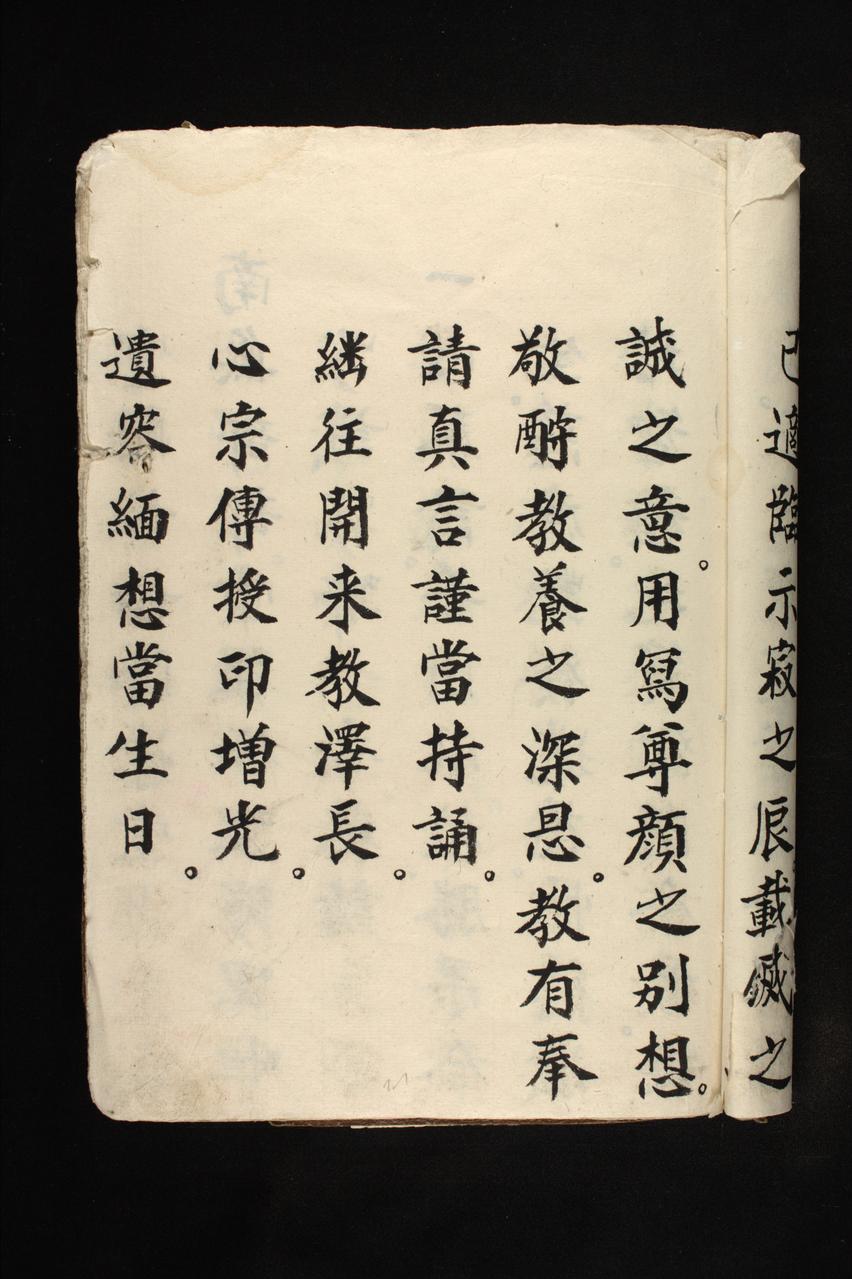 已適臨示寂之辰載鍼之
誠之意。用寫尊顏之别想。
敬酧教養之深恩。教有奉
請真言謹當持誦。
継往開来教澤長。
心宗傳授印增光。
遺容緬想當生日。